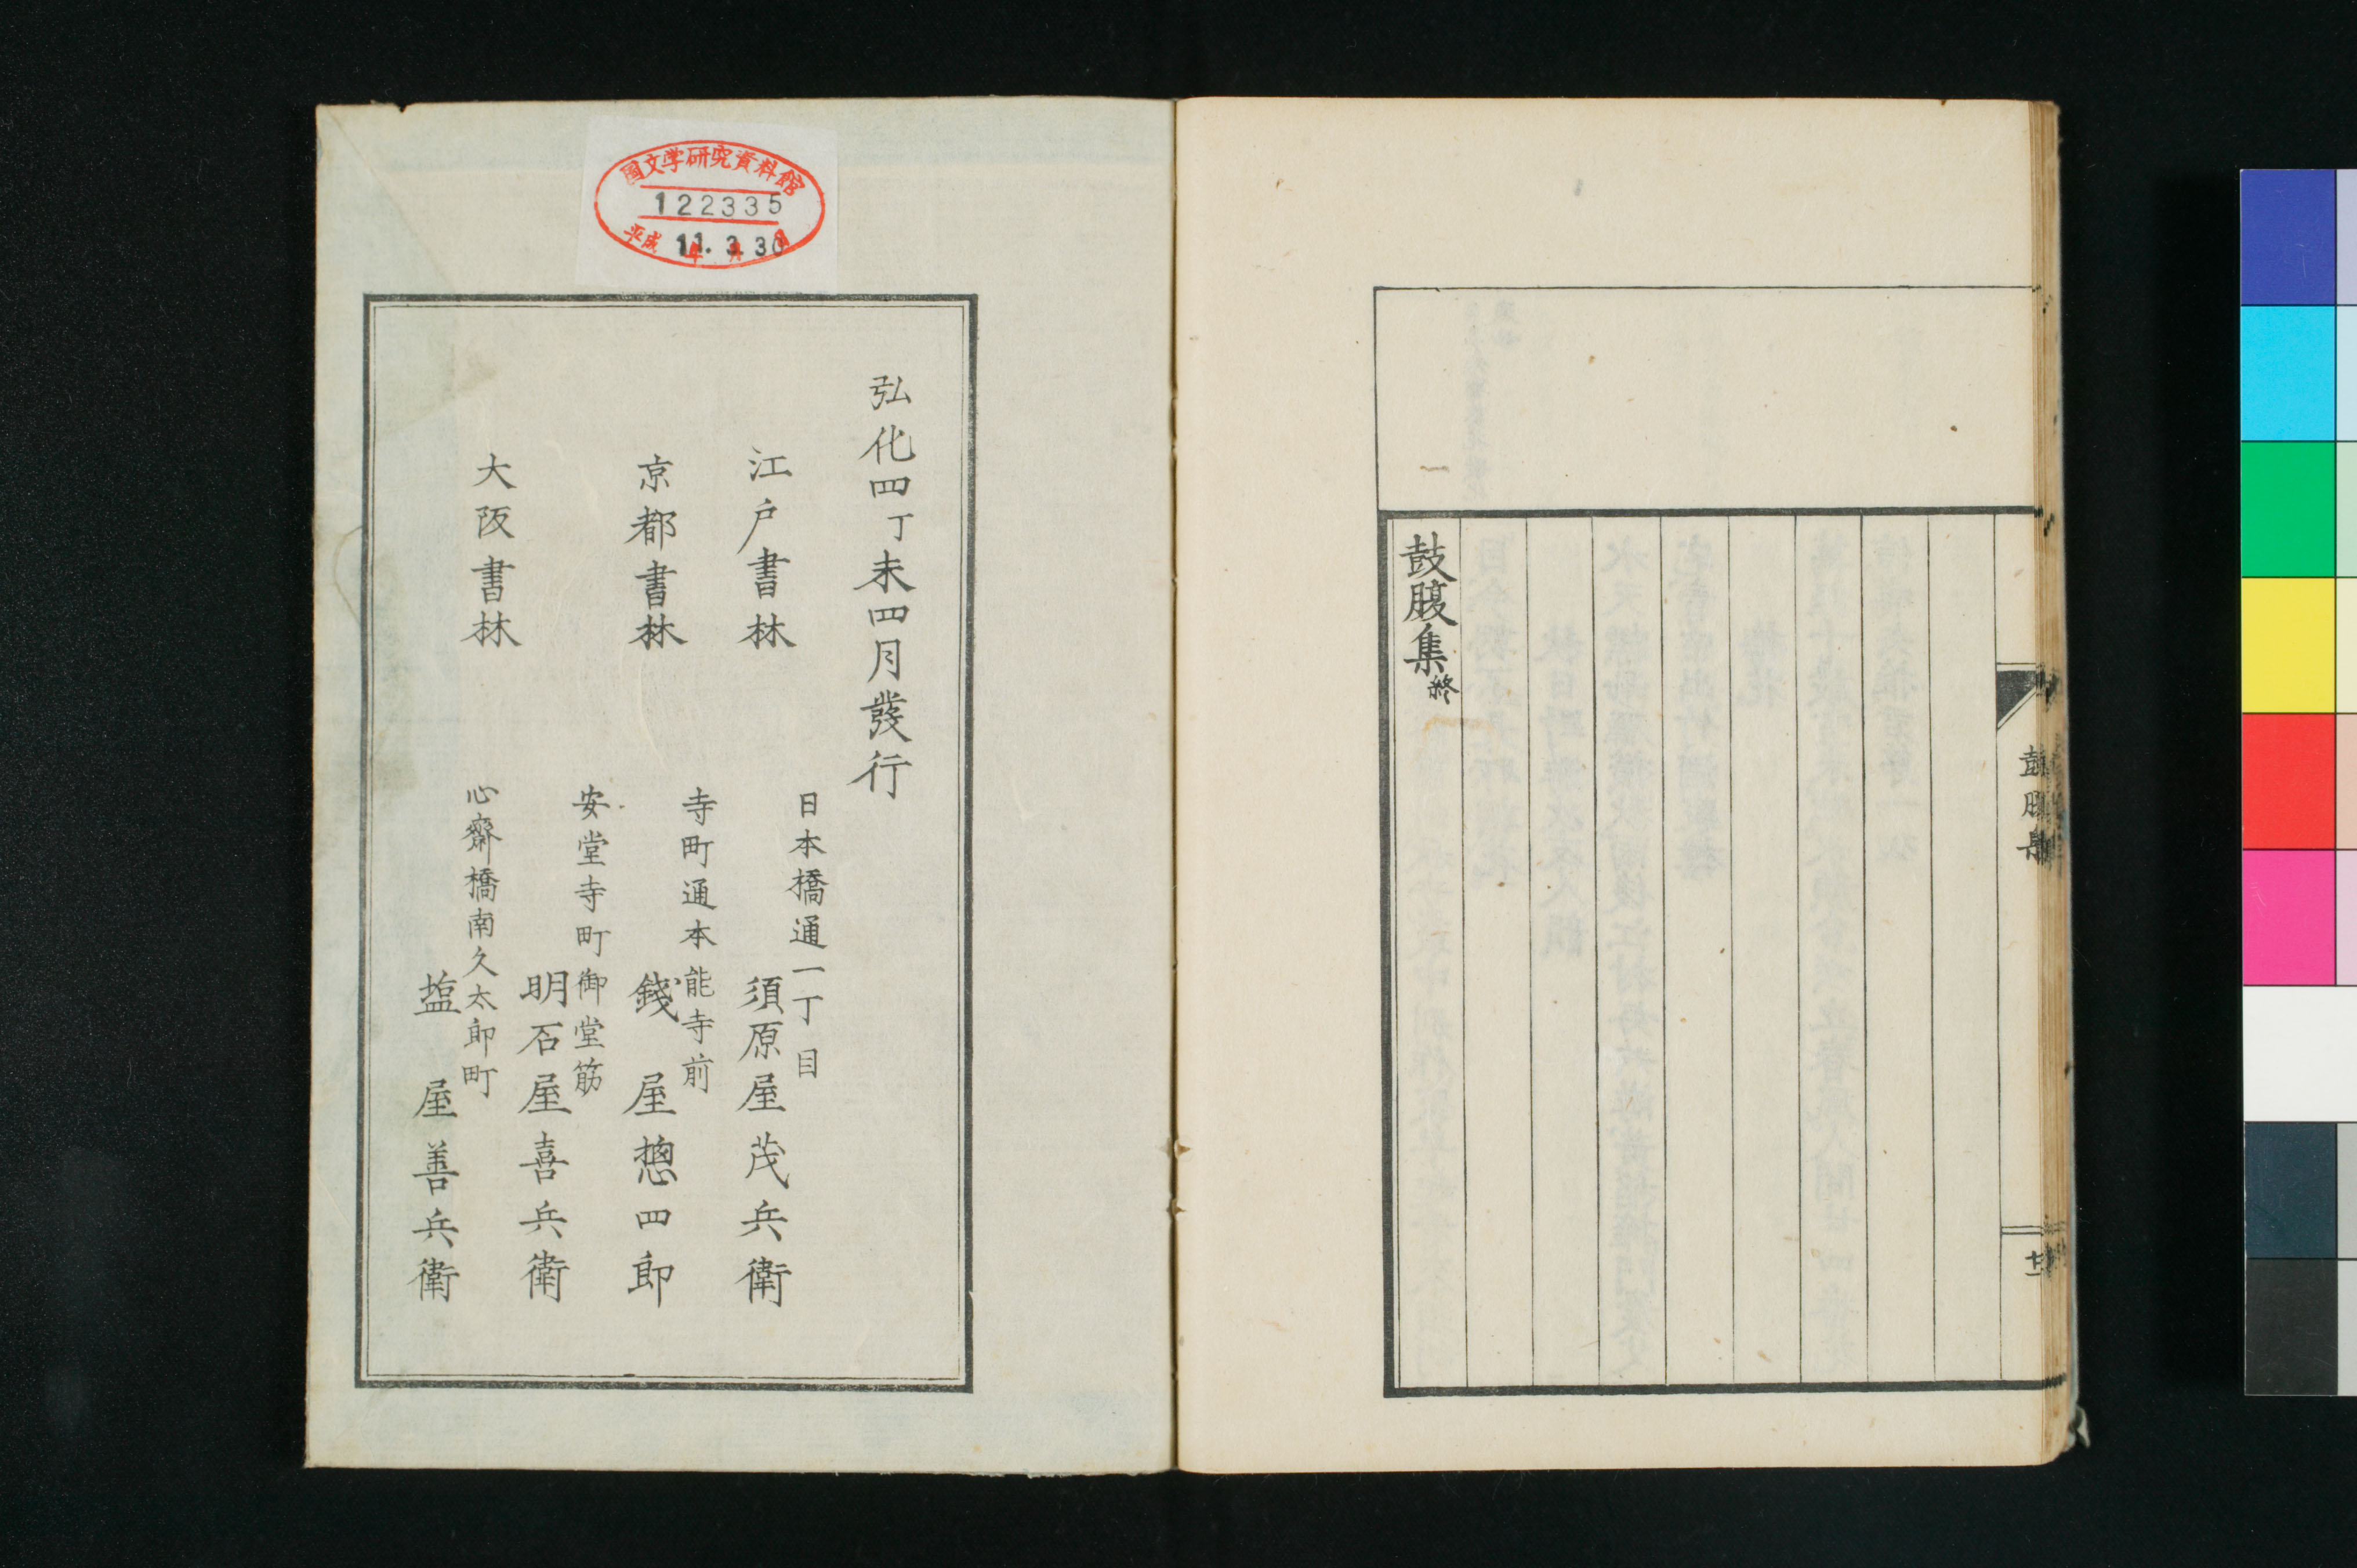 鼓腹集終
鼓腹集
弘化四丁未四月發行
江戸書林
日本橋通一丁目
須原屋茂兵衛
京都書林
寺町通本能寺前
錢屋惣四郎
大阪書林
安堂寺町御堂筋
明石屋喜兵衛
心齋橋南久太郎町
塩屋善兵衛
国文学研究資料館
122335
平成11年3月30日